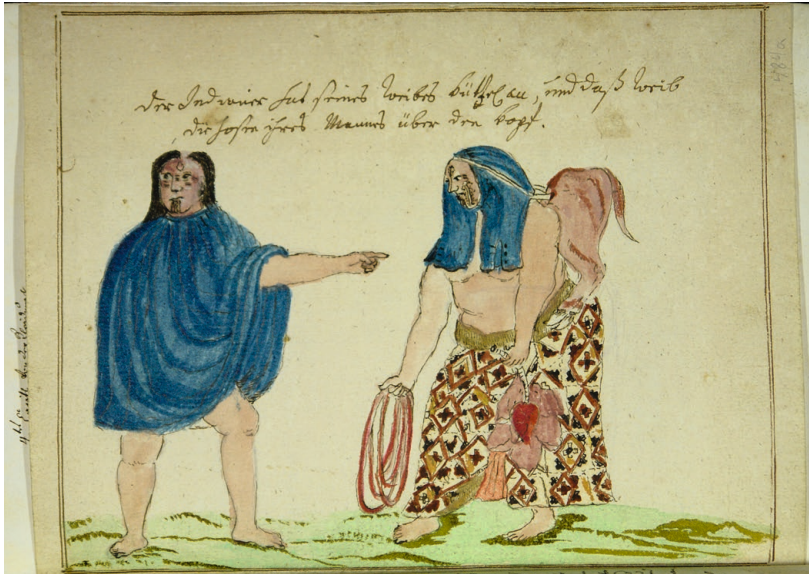 Der Indianer hat seines Weibes Küttel an, und daß Weib
die hosen ihres Mannes über den Kopf.